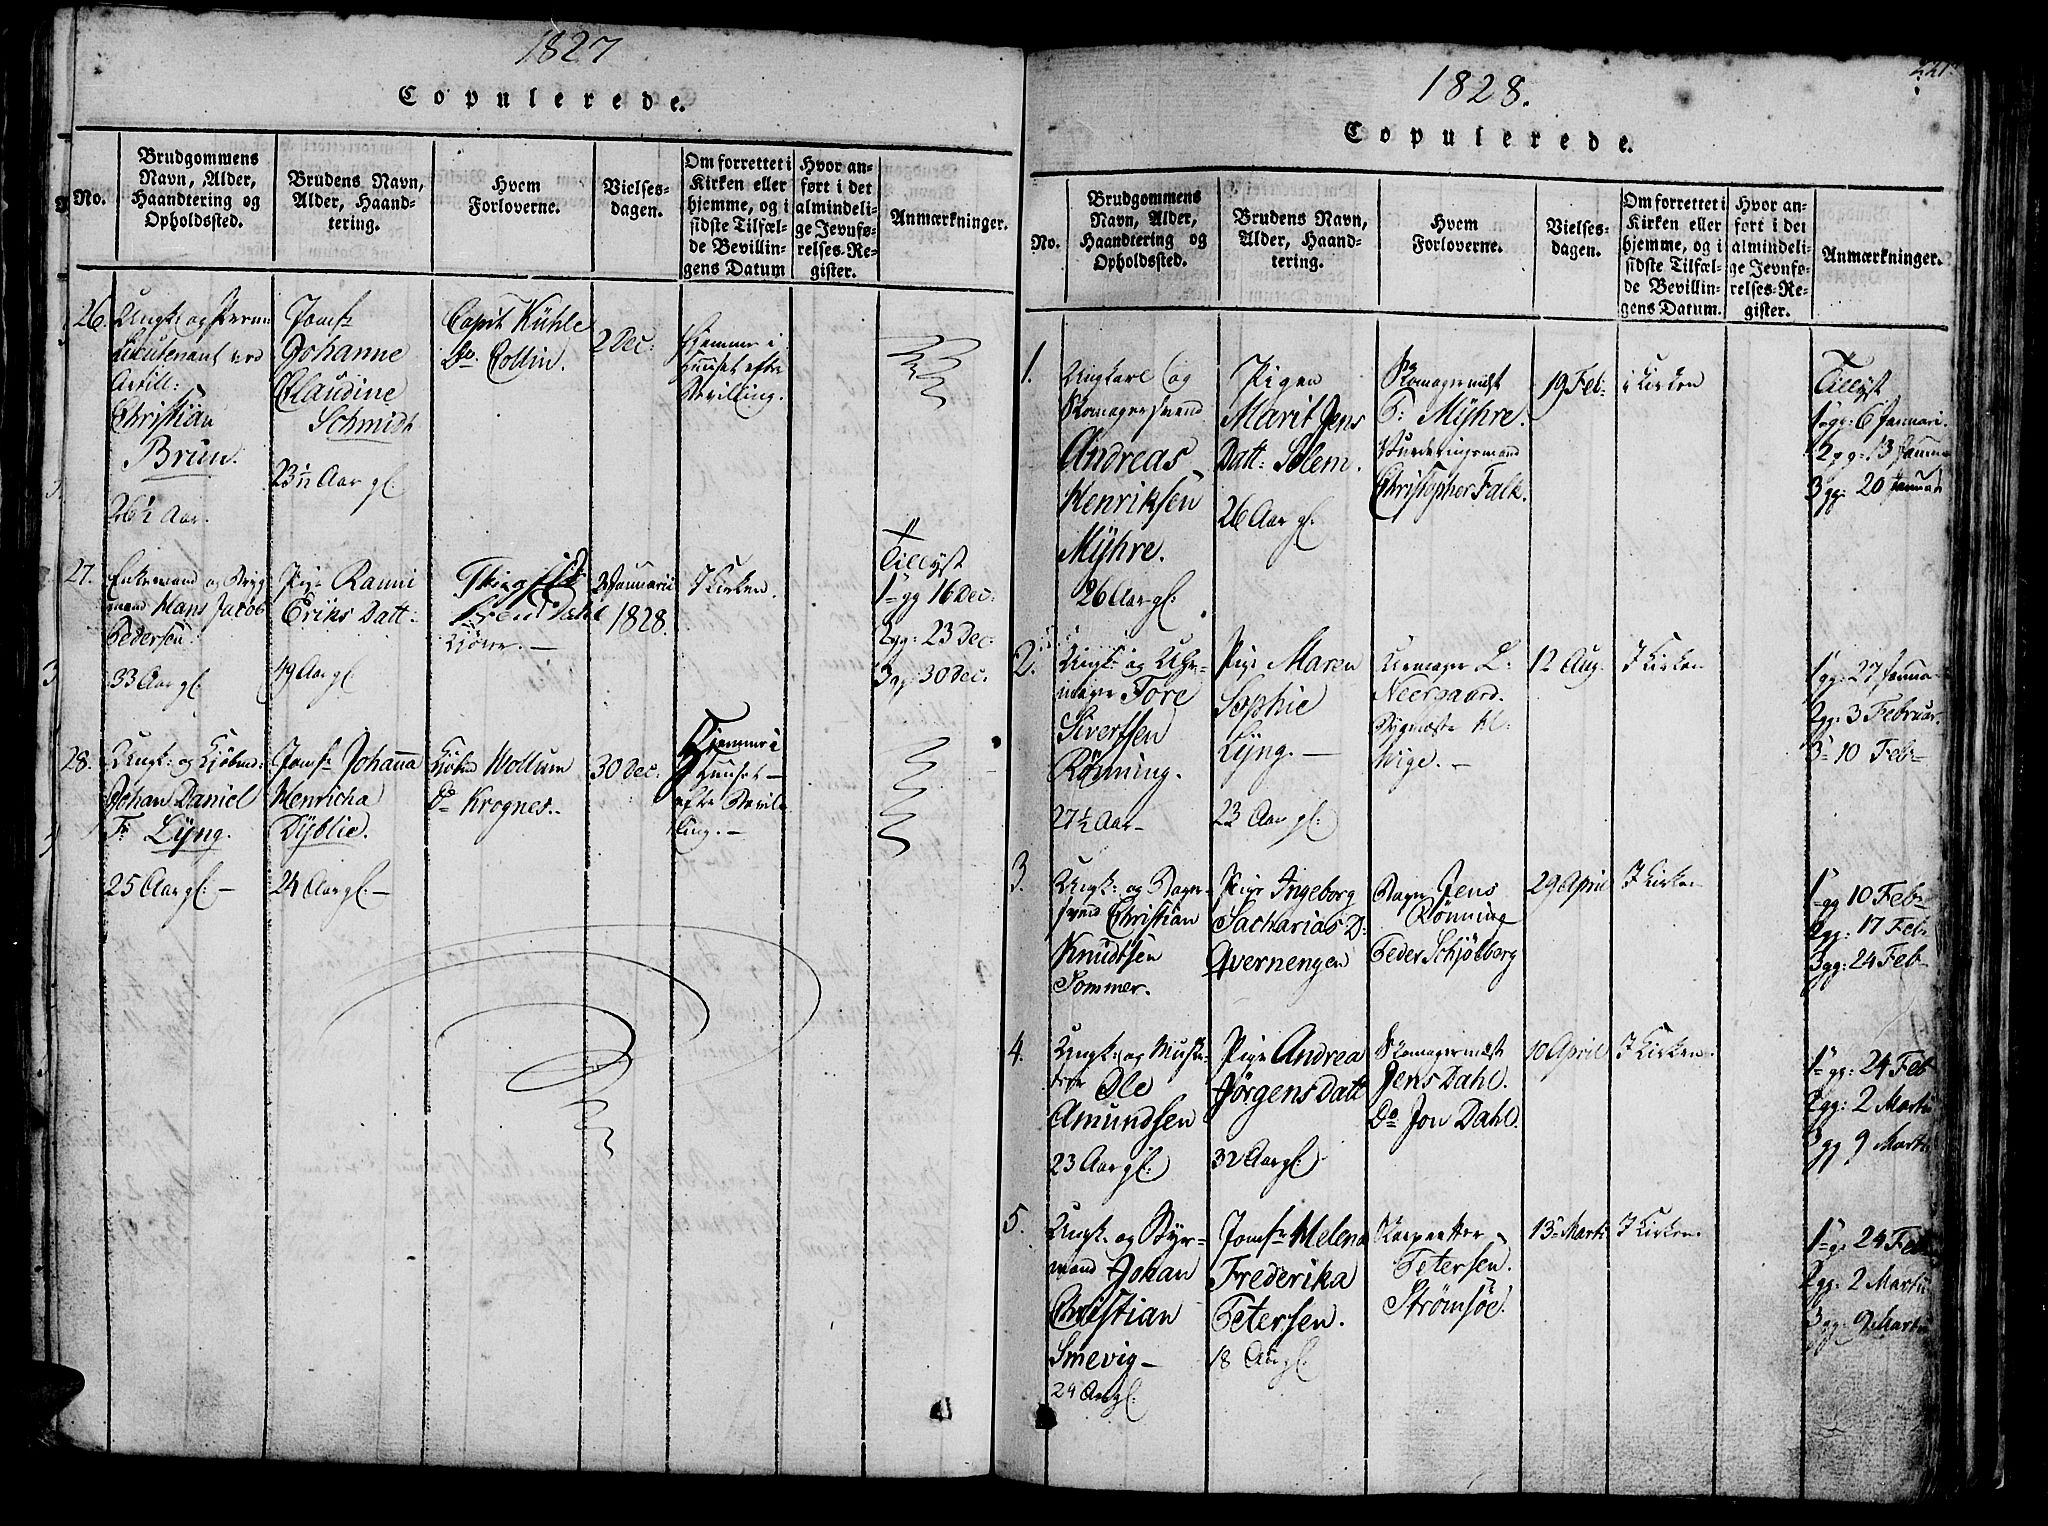 1827
Copulerede.
No.
Brudgommens
Navn, Alder,
Haandtering og
Opholdssted.
Brudens Navn,
Alder, Haand-
tering.
Hvem
Forloverne.
Vielses-
dagen.
Om forrettet i
Kirken eller
hjemme, og i
sidste Tilfæl-
de Bevillin-
gens Datum
Hvor an-
ført i det
almindeli-
ge Jevnfø-
relses-Re-
gister.
Anmærkninger.
26.
Ungk: og Prem
Lieutenant ved
Artill:
Christian
Brun.
26½ Aar.
Jomfr
Johanne
Claudine
Schmidt
23 Aar gl.
Capit Kühle
Do. Collin.
2 Dec:
Hjemme i
Huuset efter
Bevilling.
27.
Enkemand og Bryg
mand Hans Jacob
Pedersen
33 Aar gl.
Pige Ranni
Eriks Datt:
49 Aar gl
Dahl
3 Januarii
1828.
I Kirken.
Tillyst
1=gg 16 Dec:
2gg: 23 Dec:
3 gg: 30 Dec.
28.
Ungk: og Kjøbmd:
Johan Daniel
Fr Lÿng.
25 Aar gl: –
Jomfr Johanna
Henricha
Dÿblie.
24 Aar gl. –
Kjøbmd Wollum
Do Krognes.
30 Dec.
Hjemme i
Huuset –
efter Bevil
ling. –
1828.
221.
Copulerede.
No.
Brudgommens
Navn, Alder,
Haandtering og
Opholdssted.
Brudens Navn,
Alder, Haand-
tering.
Hvem
Forloverne.
Vielses-
dagen.
Om forrettet i
Kirken eller
hjemme, og i
sidste Tilfæl-
de Bevillin-
gens Datum.
Hvor an-
ført i det
almindeli-
ge Jevnfø-
relses-Re-
gister.
Anmærkninger.
1.
Ungkarl og
Skomagersvend
Andreas
Henriksen
Mÿhre.
26 Aar gl.
Pigen
Marit Jens
Datt: Solem.
26 Aar gl.
Skomagermest
Mÿhre.
Vurderingsmand
Christopher Falk.
19 Feb:
i Kirken
Tillyst
1=gg: 6 Januari.
2 gg: 13 Janua
3 gg: 20 Januar
2.
Ungk: og Uhr-
mager Tore
Sivertsen
Rönning.
27½ Aar –
Pige Maren
Sophie
Lÿng. –
23 Aar gl:
Urmager L:
Neergaard.
12 Aug.
I Kirken
1 gg: 27 Januar
2gg: 3 Februar.
3 10 Feb:
3.
Ungk: og Bager-
svend Christian
Knudtsen
Sommer.
Pige Ingeborg
Sacharias D:
Qvernengen
Bager Jens
Rönning
Peder Schjölberg
29 April
I Kirken
1=gg 10 Feb:
2gg: 17 Feb:
3gg: 24 Feb–
4.
Ungk: og Muske-
terer Ole
Amundsen
23 Aar gl:
Pige Andrea
Jörgens Datt
32 Aar gl:
Skomagermest
Jens Dahl.
Do Jon Dahl.
10 April
I Kirken
1=gg: 24 Feb
2gg: 2 Martii
3 gg 9 Martii
5.
Ungk: og Styr-
mand Johan
Christian
Smevig –
24 Aar gl:
Jomfr Melena
Frederika
Petersen.
18 Aar gl:
Petersen.
Strömsöe.
13 Marti
I Kirken
1=gg 24 Feb
2gg: 2 Martii
3 gg: 9 Martii